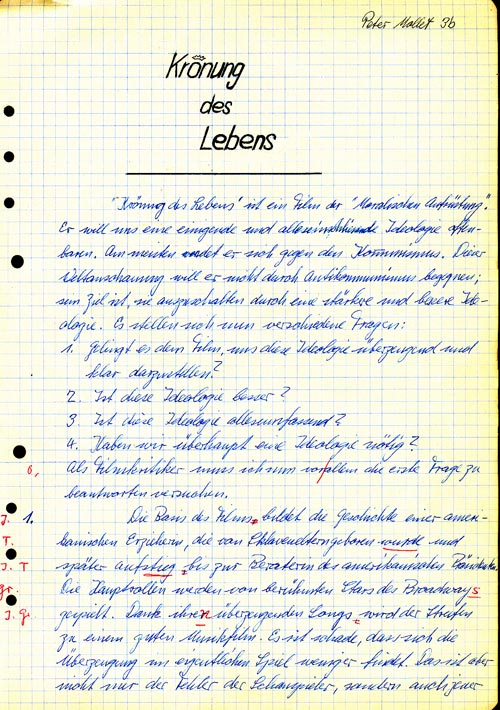 Peter Mallet 3b
Krönung
des
Lebens
"Krönung des Lebens" ist ein Film der "Moralischen Aufrüstung".
Er will uns eine einigende und alleseinschliessende Ideologie offen-
baren. Am meisten wendet er sich gegen den Kommunismus. Dieser
Weltanschauung will er nicht durch Antikommunismus begegnen;
sein Ziel ist, sie auszuschalten durch eine stärkere und bessere Ide-
ologie. Es stellen sich nun verschiedene Fragen:
1. Gelingt es dem Film, uns diese Ideologie überzeugend und
klar darzustellen?
2. Ist diese Ideologie besser?
3. Ist diese Ideologie allesumfassend?
4. Haben wir überhaupt eine Ideologie nötig?
Als Filmkritiker muss ich nun vor allem die erste Frage zu
beantworten versuchen.
J. 1. Die Basis des Films bildet die Geschichte einer ameri-
T. kanischen Erzieherin, die von Sklaveneltern geboren wurde und
J. T später aufstieg bis zur Beraterin des amerikanischen Präsidenten.
gr. Die Hauptrollen werden von berühmten Stars des Broadways
J. gr. gespielt. Dank ihren überzeugenden Songs wird der Streifen
zu einem guten Musikfilm. Es ist schade, dass sich die
Überzeugung im eigentlichen Spiel weniger findet. Das ist aber
nicht nur der Fehler der Schauspieler, sondern auch jener